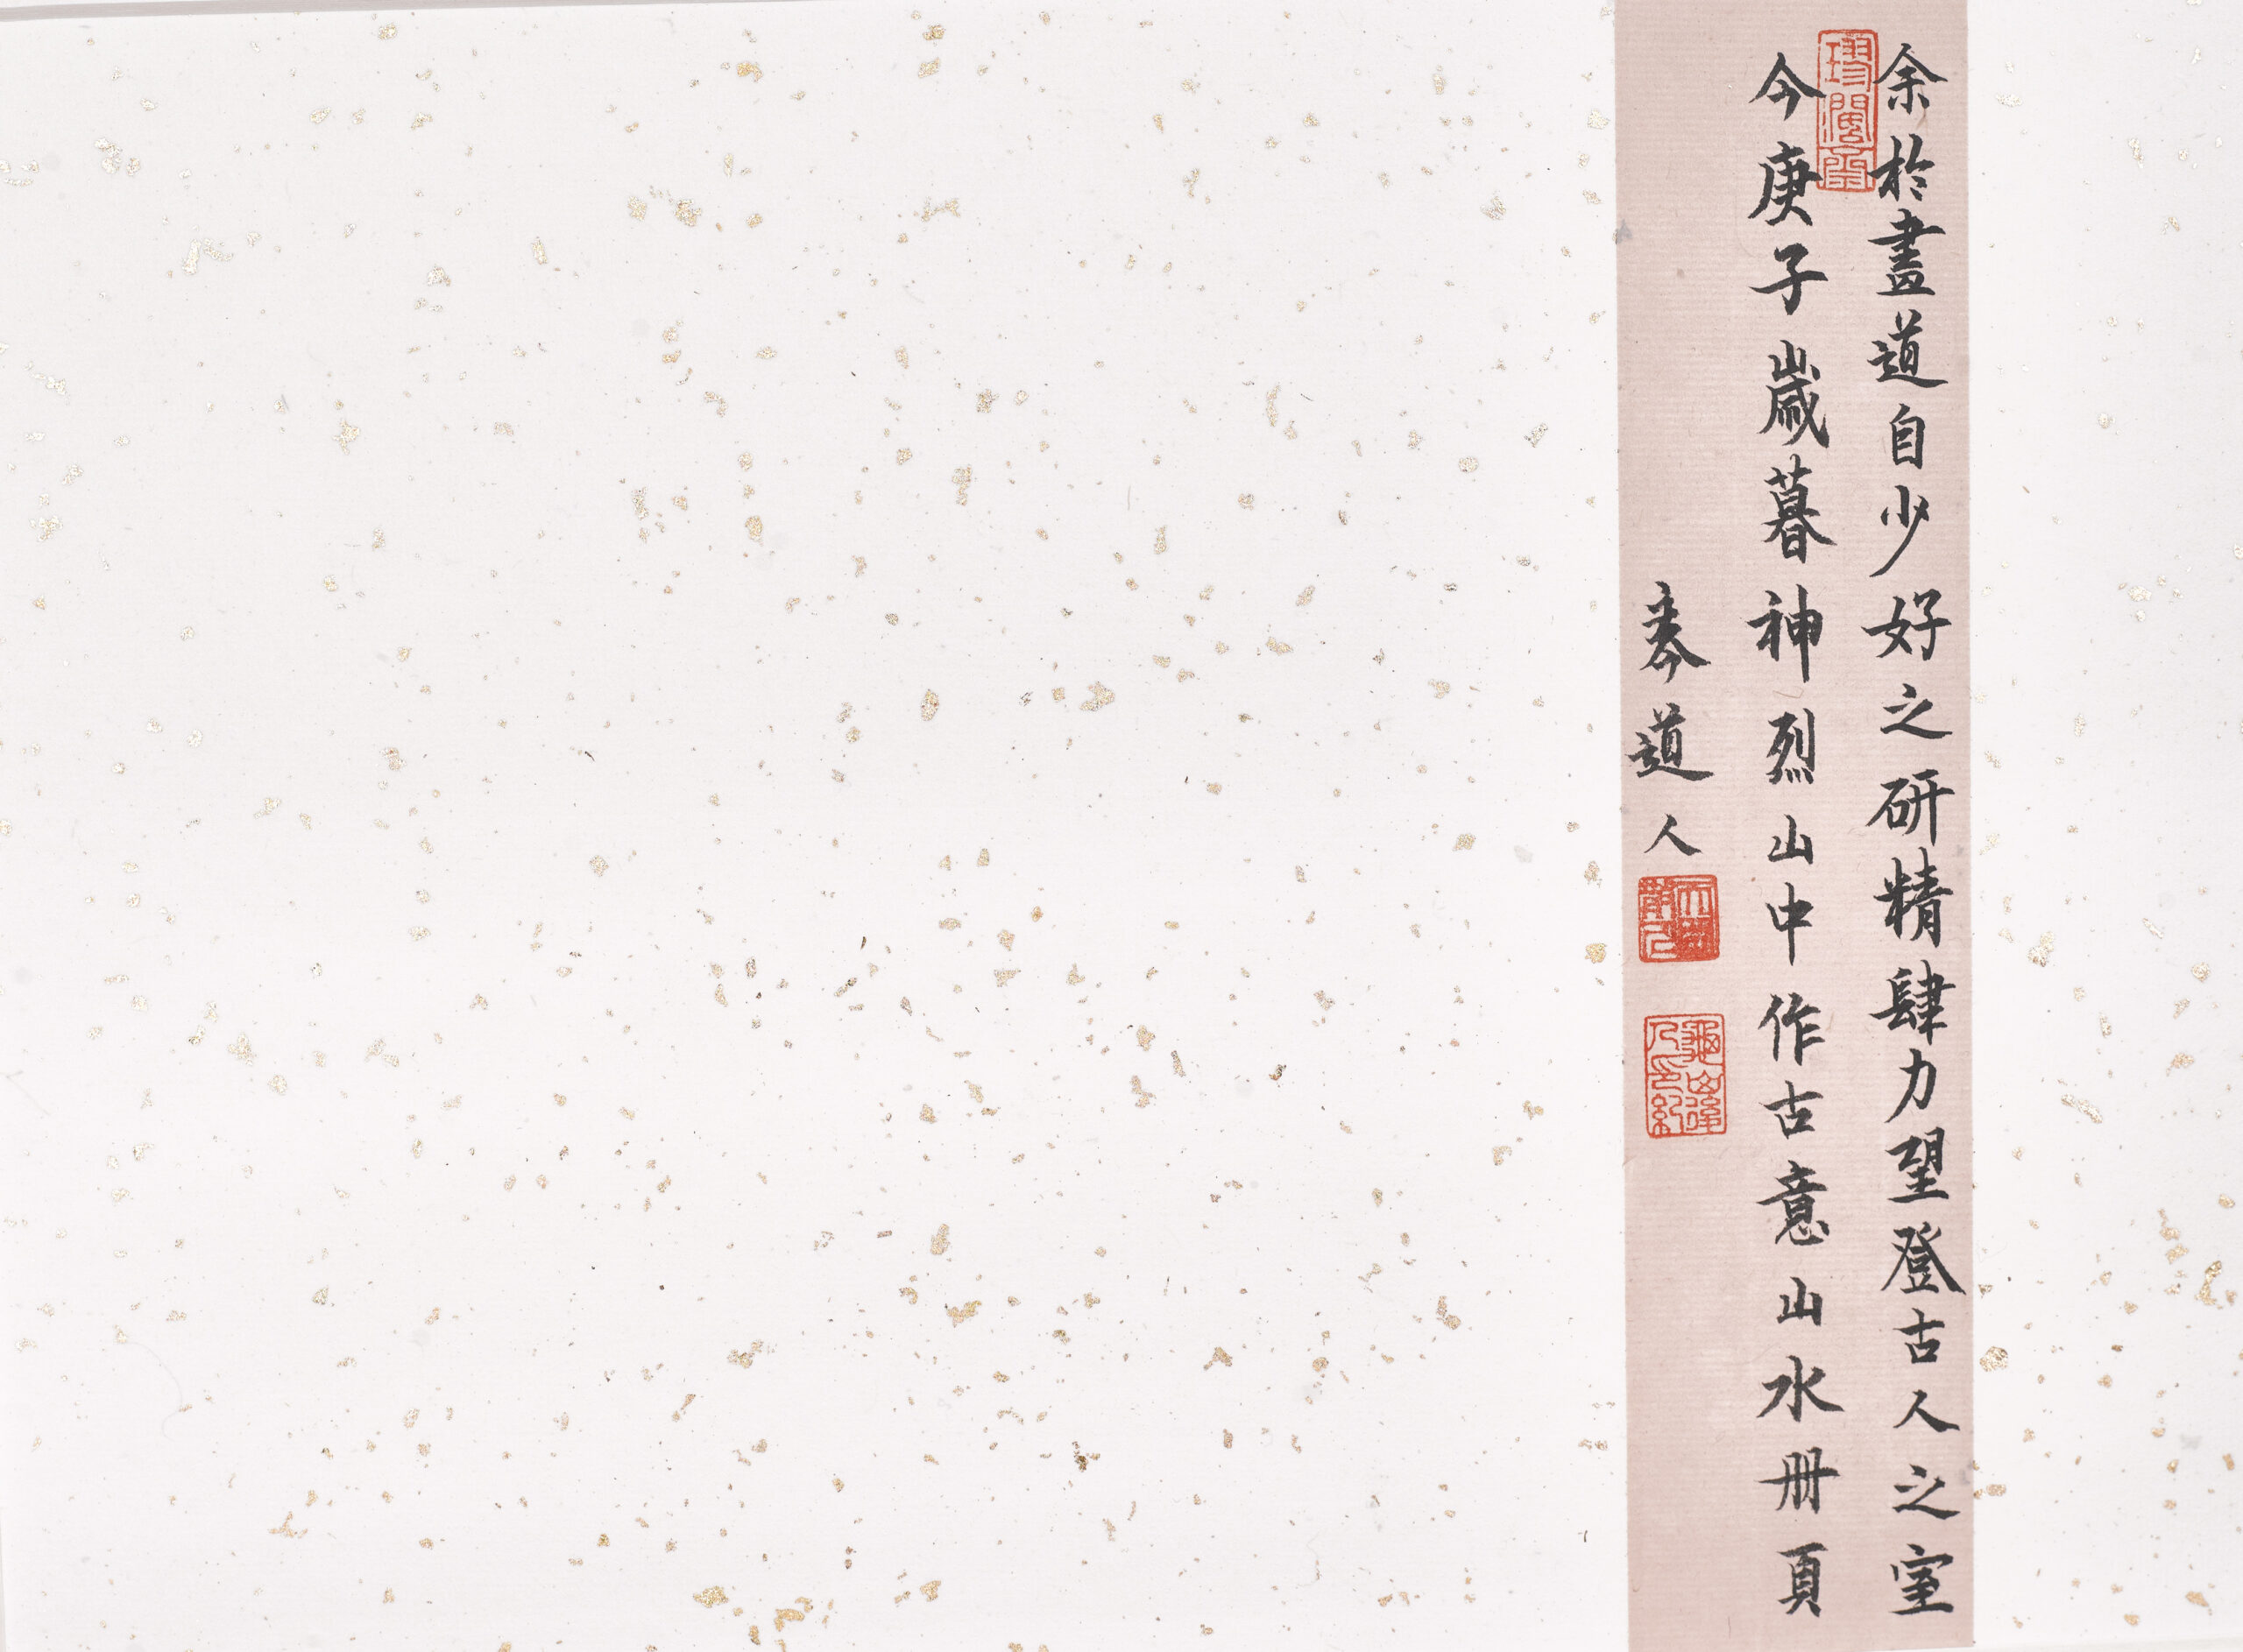 余於畫道自少好之研精肆力望登古人之室
今庚子歲暮神烈山中作古意山水冊頁
琴道人